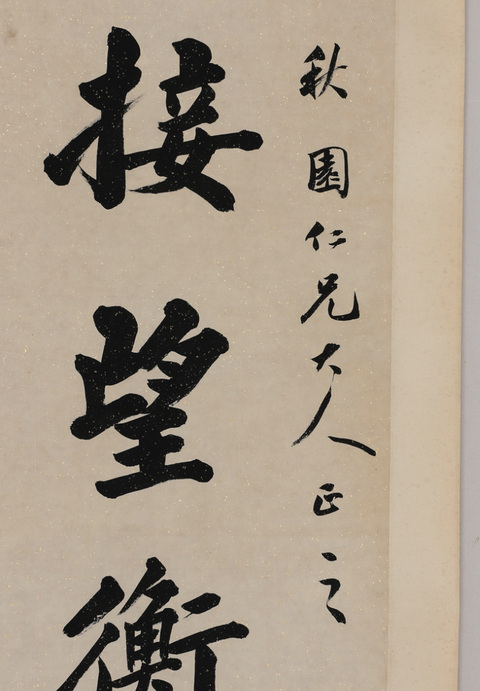 秋園仁兄大人正之
接望衡